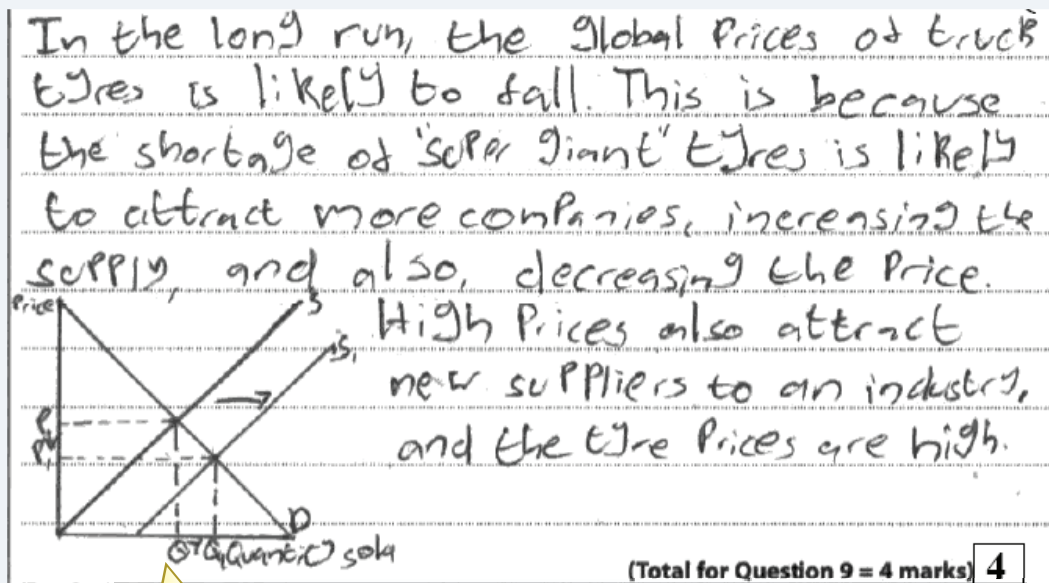 In the long run, the global prices of truck
tyres is likely to fall. This is because
the shortage of "super giant" tyres is likely
to attract more companies, increasing the
supply, and also, decreasing the price.
Price
S
High Prices also attract
S₁
new suppliers to an industry,
and the tyre Prices are high.
P₁
D
Q₁ Quantity sold
(Total for Question 9 = 4 marks) 4